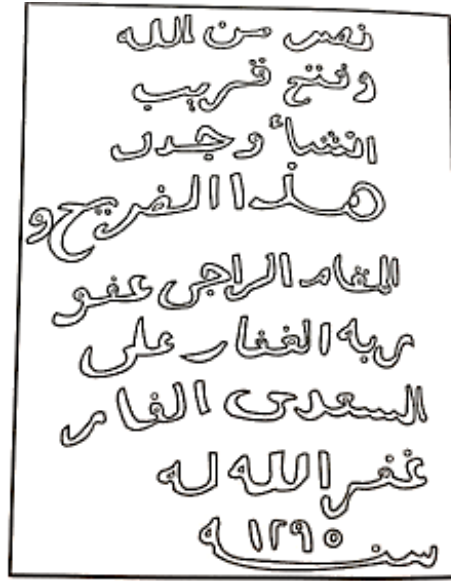 نصر من الله
وفتح قريب
انشاء وجدد
هذا الضريح و
المقام الراجى عفو
ربه الغفار على
السعدى الفار
غفر الله له
سنه ١٢٩٥